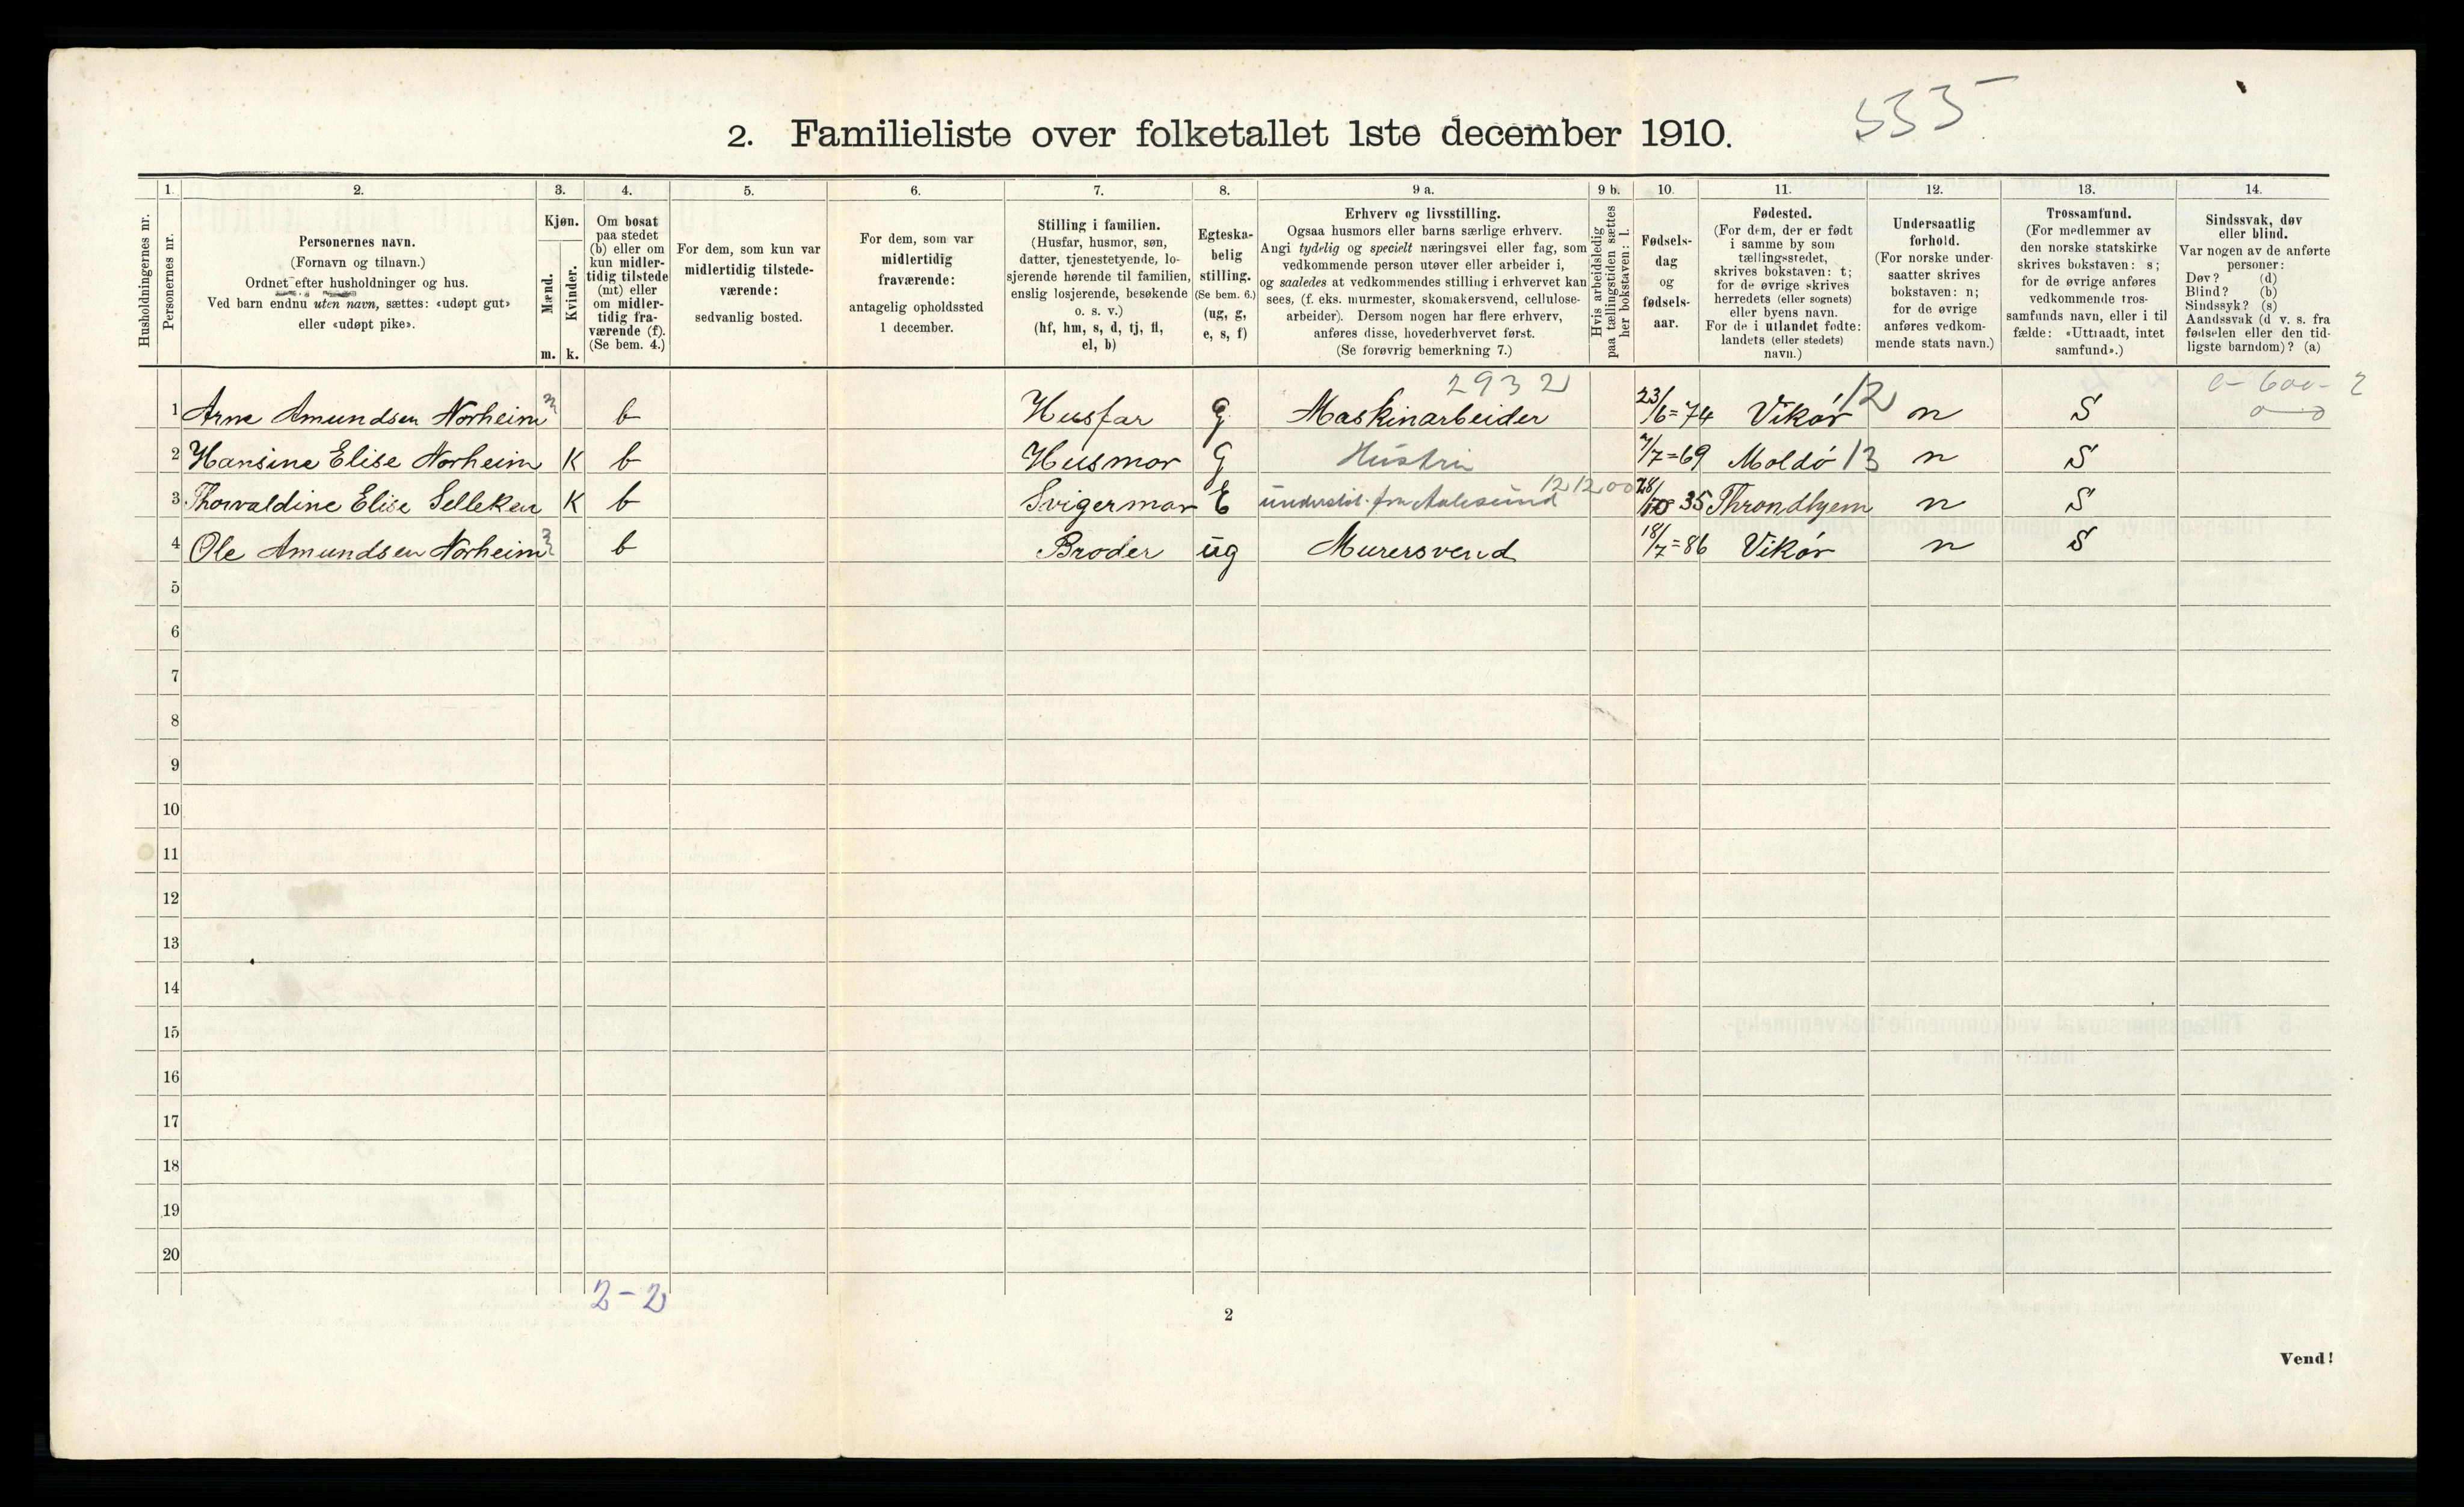 2. Familieliste over folketallet 1ste december 1910.
535
Husholdningernes nr.
1.
Personernes nr.
2.
Personernes navn.
(Fornavn og tilnavn.)
Ordnet efter husholdninger og hus.
Ved barn endnu uten navn, sættes: «udøpt gut»
eller «udøpt pike».
3.
Kjøn.
Mænd.
m.
Kvinder.
k.
4.
Om bosat
paa stedet
(b) eller om
kun midler-
tidig tilstede
(mt) eller
om midler-
tidig fra-
værende (f).
(Se bem. 4.)
5.
For dem, som kun var
midlertidig tilstede-
værende:
sedvanlig bosted.
6.
For dem, som var
midlertidig
fraværende:
antagelig opholdssted
1 december.
7.
Stilling i familien.
(Husfar, husmor, søn,
datter, tjenestetyende, lo-
sjerende hørende til familien,
enslig losjerende, besøkende
o. s. v.)
(hf, hm, s, d, tj, fl,
el, b)
8.
Egteska-
belig
stilling.
(Se bem. 6.)
(ug, g,
e, s, f)
9 a.
Erhverv og livsstilling.
Ogsaa husmors eller barns særlige erhverv.
Angi tydelig og specielt næringsvei eller fag, som
vedkommende person utøver eller arbeider i,
og saaledes at vedkommendes stilling i erhvervet kan
sees, (f. eks. murmester, skomakersvend, cellulose-
arbeider). Dersom nogen har flere erhverv,
anføres disse, hovederhvervet først.
(Se forøvrig bemerkning 7.)
9 b.
Hvis arbeidsledig
paa tællingstiden sættes
her bokstaven: l.
10.
Fødsels-
dag
og
fødsels-
aar.
11.
Fødested.
(For dem, der er født
i samme by som
tællingsstedet,
skrives bokstaven: t;
for de øvrige skrives
herredets (eller sognets)
eller byens navn.
For de i utlandet fødte:
landets (eller stedets)
navn.)
12.
Undersaatlig
forhold.
(For norske under-
saatter skrives
bokstaven: n;
for de øvrige
anføres vedkom-
mende stats navn.)
13.
Trossamfund.
(For medlemmer av
den norske statskirke
skrives bokstaven: s;
for de øvrige anføres
vedkommende tros-
samfunds navn, eller i til
fælde: «Uttraadt, intet
samfund».)
14.
Sindssvak, døv
eller blind.
Var nogen av de anførte
personer:
Døv? (d)
Blind? (b)
Sindssyk? (s)
Aandssvak (d v. s. fra
fødselen eller den tid-
ligste barndom)? (a)
2932
0-600-2
1 Arne Amundsen Norheim m b Husfar G Maskinarbeider 23/6=74 Vikør 12 n S
2 Hansine Elise Norheim K b Husmor G Hustru 7/7=69 Moldö 13 n S
121200
3 Thorvaldine Elise Selleken K b Svigermor E understøt. fra Aalesund 28/10 35 Throndhjem n S
4 Ole Amundsen Norheim m b Broder ug Murersvend 18/7=86 Vikør n S
5
6
7
8
9
10
11
12
13
14
15
16
17
18
19
20
2-2
2
Vend!